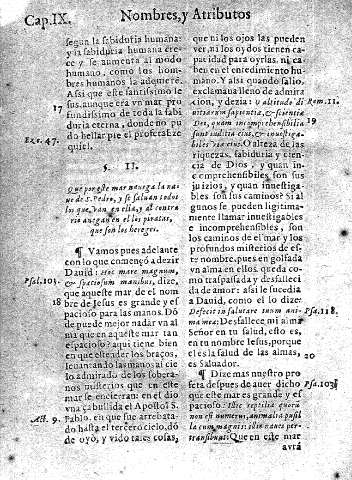 Cap.IX. Nombres, y Atributos
segun la sabiduria humana:
y la sabiduria humana cre-
ce y se aumenta al modo
humano, como los hom-
bres humanos la adquiere.
Assi que este santissimo Ie-
17 sus, aunque era vn mar pro
fundissimo de toda la sabi-
duria eterna, donde no pu
Eze. 47. do hellar pie el profeta Eze
quiel.
§. II.
Que por este mar nauega la na-
ue de S. Pedro, y se saluan todos
los que van en ella, y al contra
rio anegan en el los piratas,
que son los hereges.
¶ Vamos pues adelante
con lo que començò a dezir
Psal. 103. Dauid: Hoc mare magnum,
& spatiosum manibus, dize,
que aqueste mar de el nom
18 bre de Iesus es grande y es
pacioso para las manos. Dò
de puede mejor nadar vn al
ma que en aqueste mar tan
espacioso? aqui tiene bien
en que estender los braços,
leuantando las manos al cie
lo admirada de los sobera-
nos misterios que en este
mar se encierran: en el dio
vna çabullida el Apostol S.
Act. 9. Pablo, en que fue arrebata-
do hasta el tercero cielo, dò
de oyò, y vido tales cosas,
que ni los ojos las pueden
ver, ni los oydos tienen ca-
pacidad para oyrlas, ni ca-
ben en el entedimiento hu-
mano. Y alsi quando salio,
exclamaua lleno de admira
cion, y dezia: O altitudo di Rom. 11.
uitiarum sapientiæ, & scientiæ 19
Dei, quam incomprehensibilia
sunt iudicia eius, & inuestiga-
biles viæ eius. O alteza de las
riquezas, sabiduria y cien-
cia de Dios, y quan in-
comprehensibles son sus
juizios, y quan inuestiga-
bles son sus caminos! Si al
gunos se pueden legitima-
mente llamar inuestigables
e incomprehensibles, son
los caminos de el mar y los
profundos misterios de es-
te nombre, pues en golfada
vn alma en ellos, queda co-
mo traspassada y desfalleci
da de amor: assi le sucedia
a Dauid, como el lo dize:
Defecit in salutare tuum ani- Psa. 118.
ma mea: Desfallece mi alma
Señor en tu salud, esto es,
en tu nombre Iesus, porque
el es la salud de las almas, 20
es Saluador.
¶ Dize mas nuestro pro
feta despues de auer dicho Psa. 103.
que este mar es grande y es
pacioso: Illic reptilia quorū
non est numerus, animalia pusil
la cum magnis: illic naues per-
transibunt: Que en este mar
aurá